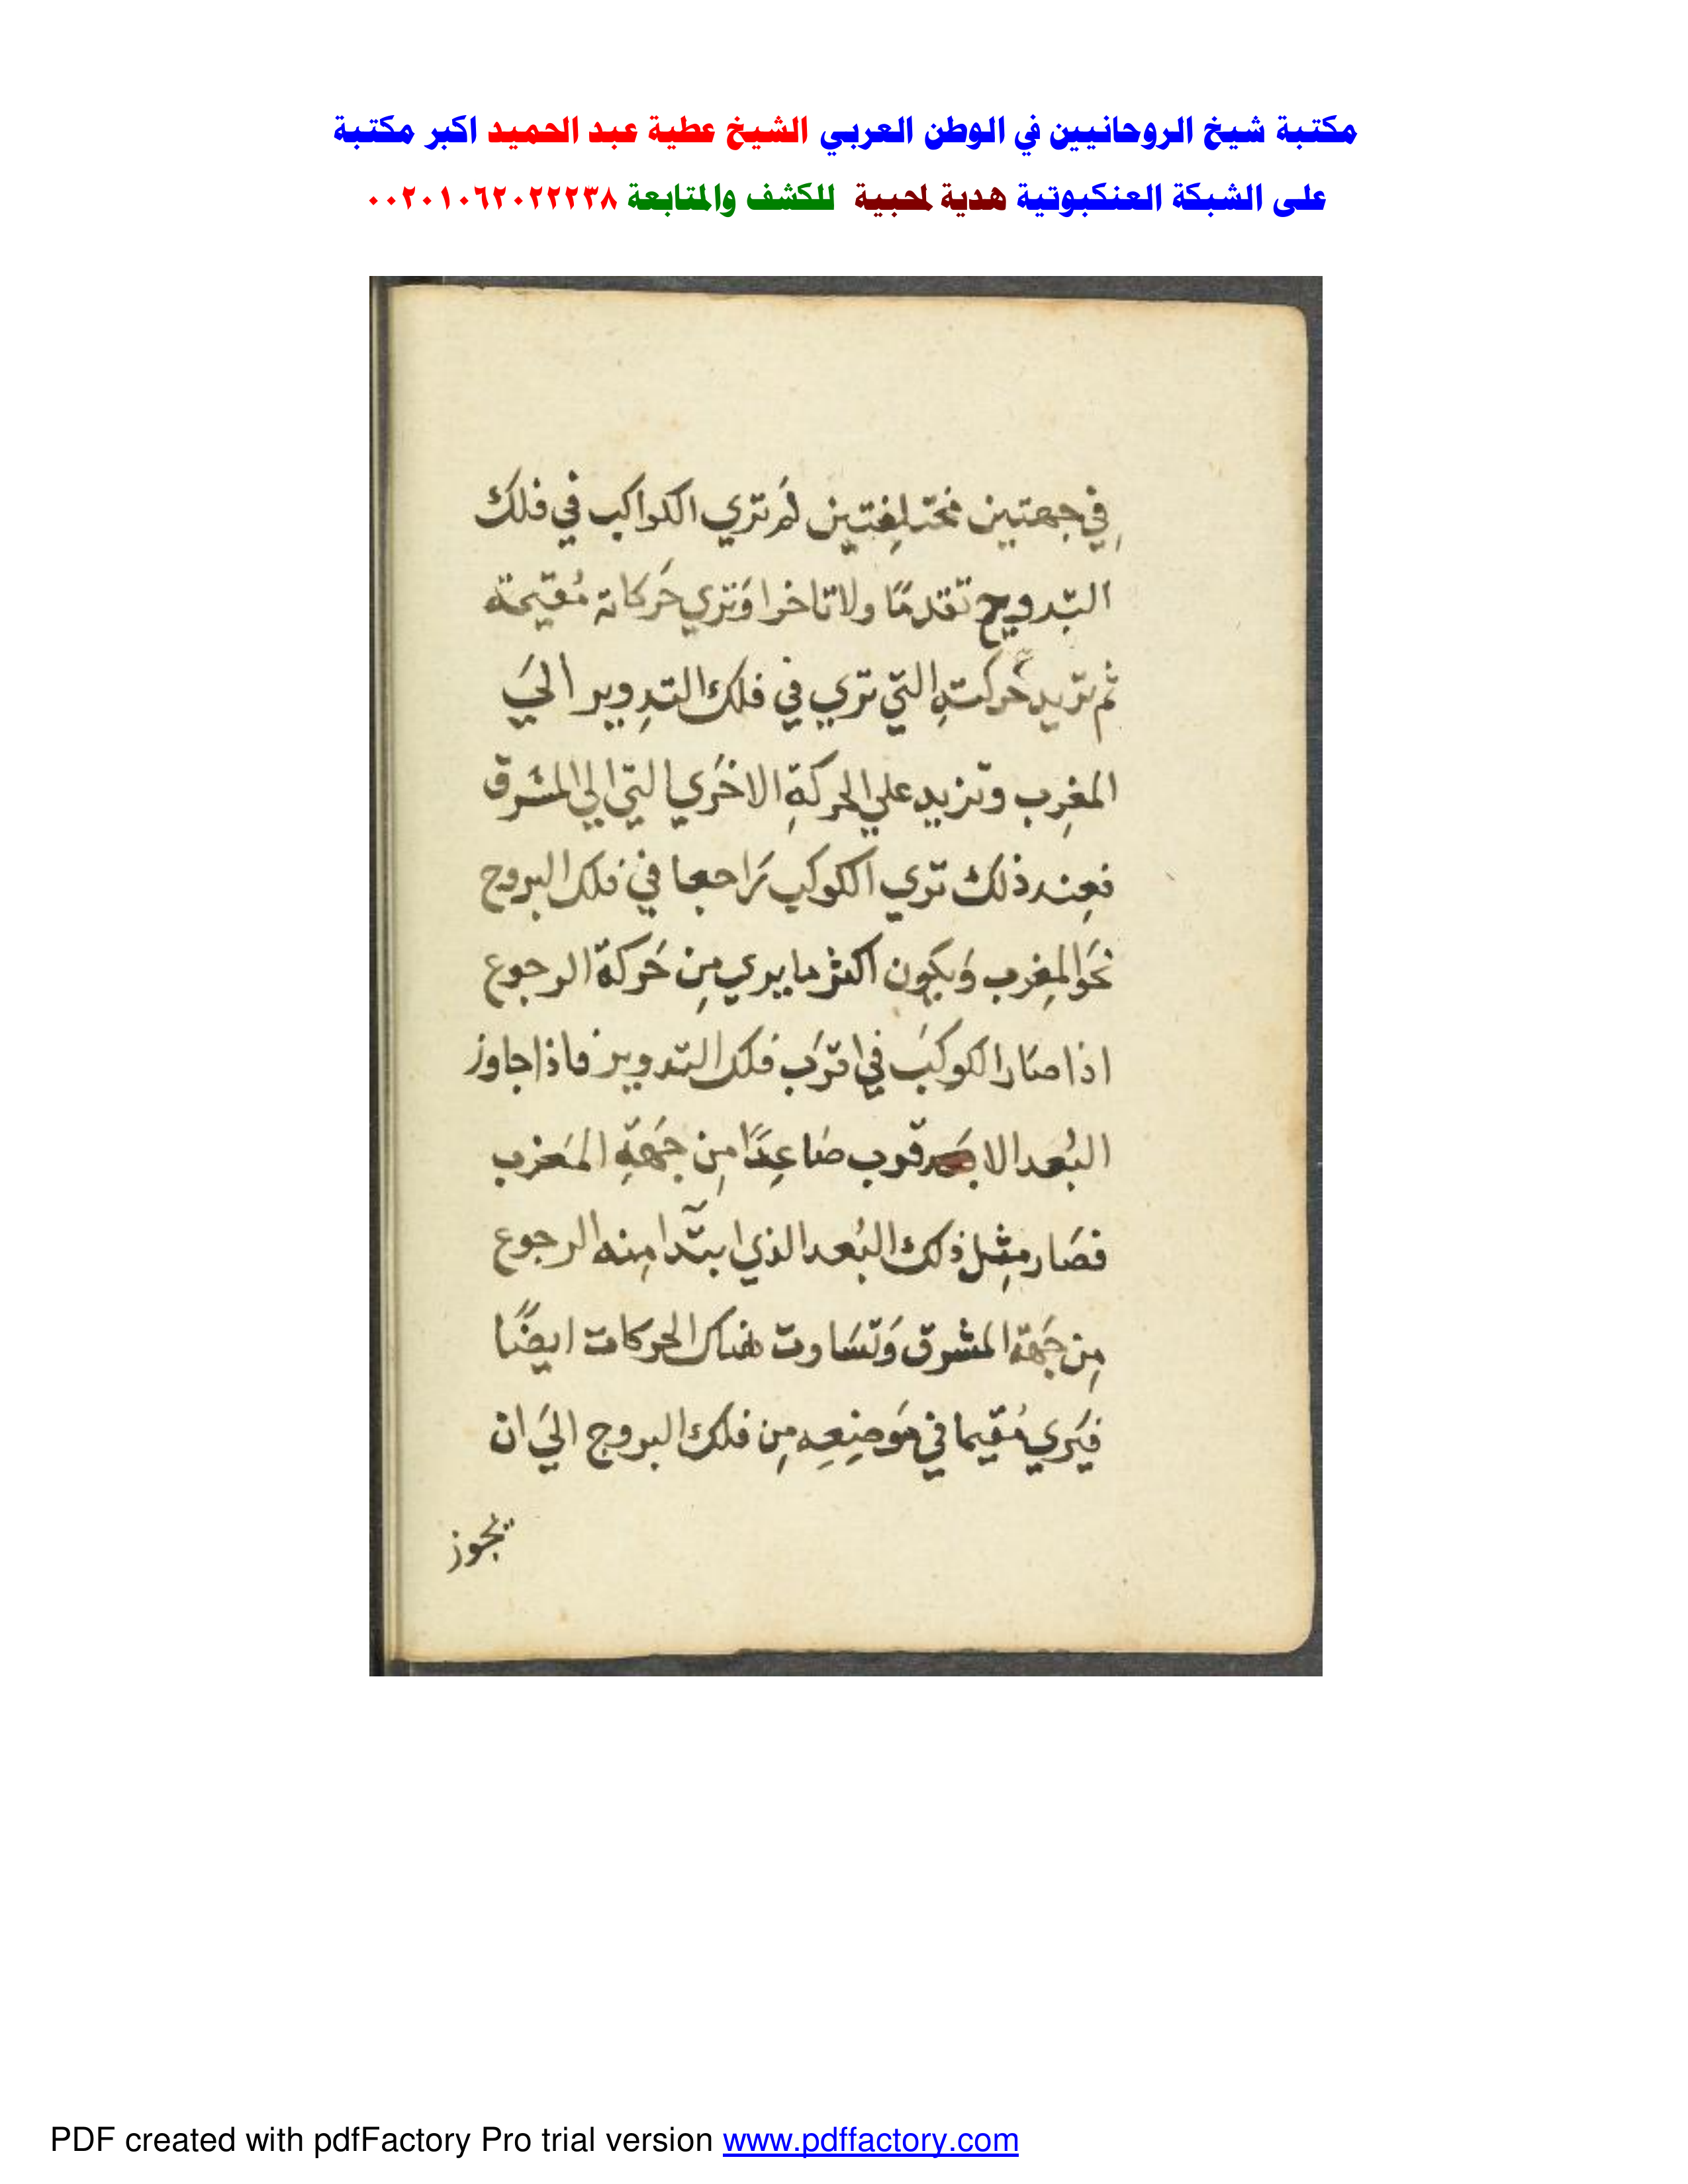 مكتبة شيخ الروحانيين في الوطن العربي الشيخ عطية عبد الحميد اكبر مكتبة
على الشبكة العنكبوتية هدية لمحبية للكشف والمتابعة ٠٠٢٠١٠٦٢٠٢٢٢٣٨
فِي جهتين مختلِفتين لم تري الكواكب في فلك
البدويج تقدمًا ولا تاخرا وَتري حَركاته مُقيمة
ثم تزيد حَركتهِ التي تري في فلك التدِوير الي
المغرِب وتزيد علي الحركةِ الاخَري التي الي المشرق
فعِند ذلك تري الكوكب رَاجعا في فلك البروج
نحَو المغرب وَيكون اكثر ما يري مِن حَركة الرجوع
اذا صَار الكوكبَ في اقرَب فلك التدوير فاذا جاوز
البُعد الا قرب صَاعِدًا مِن جَهَةِ المَغرب
فصَار مِثِل ذلك البُعد الذي ابتدا مِنه الرجوع
مِن جَهة المشرق وَتسَاوت هناك الحركات ايضًا
فيَري مُقيما في مَوضِعِه مِن فلك البروج اليَ ان
يجوز
PDF created with pdfFactory Pro trial version www.pdffactory.com